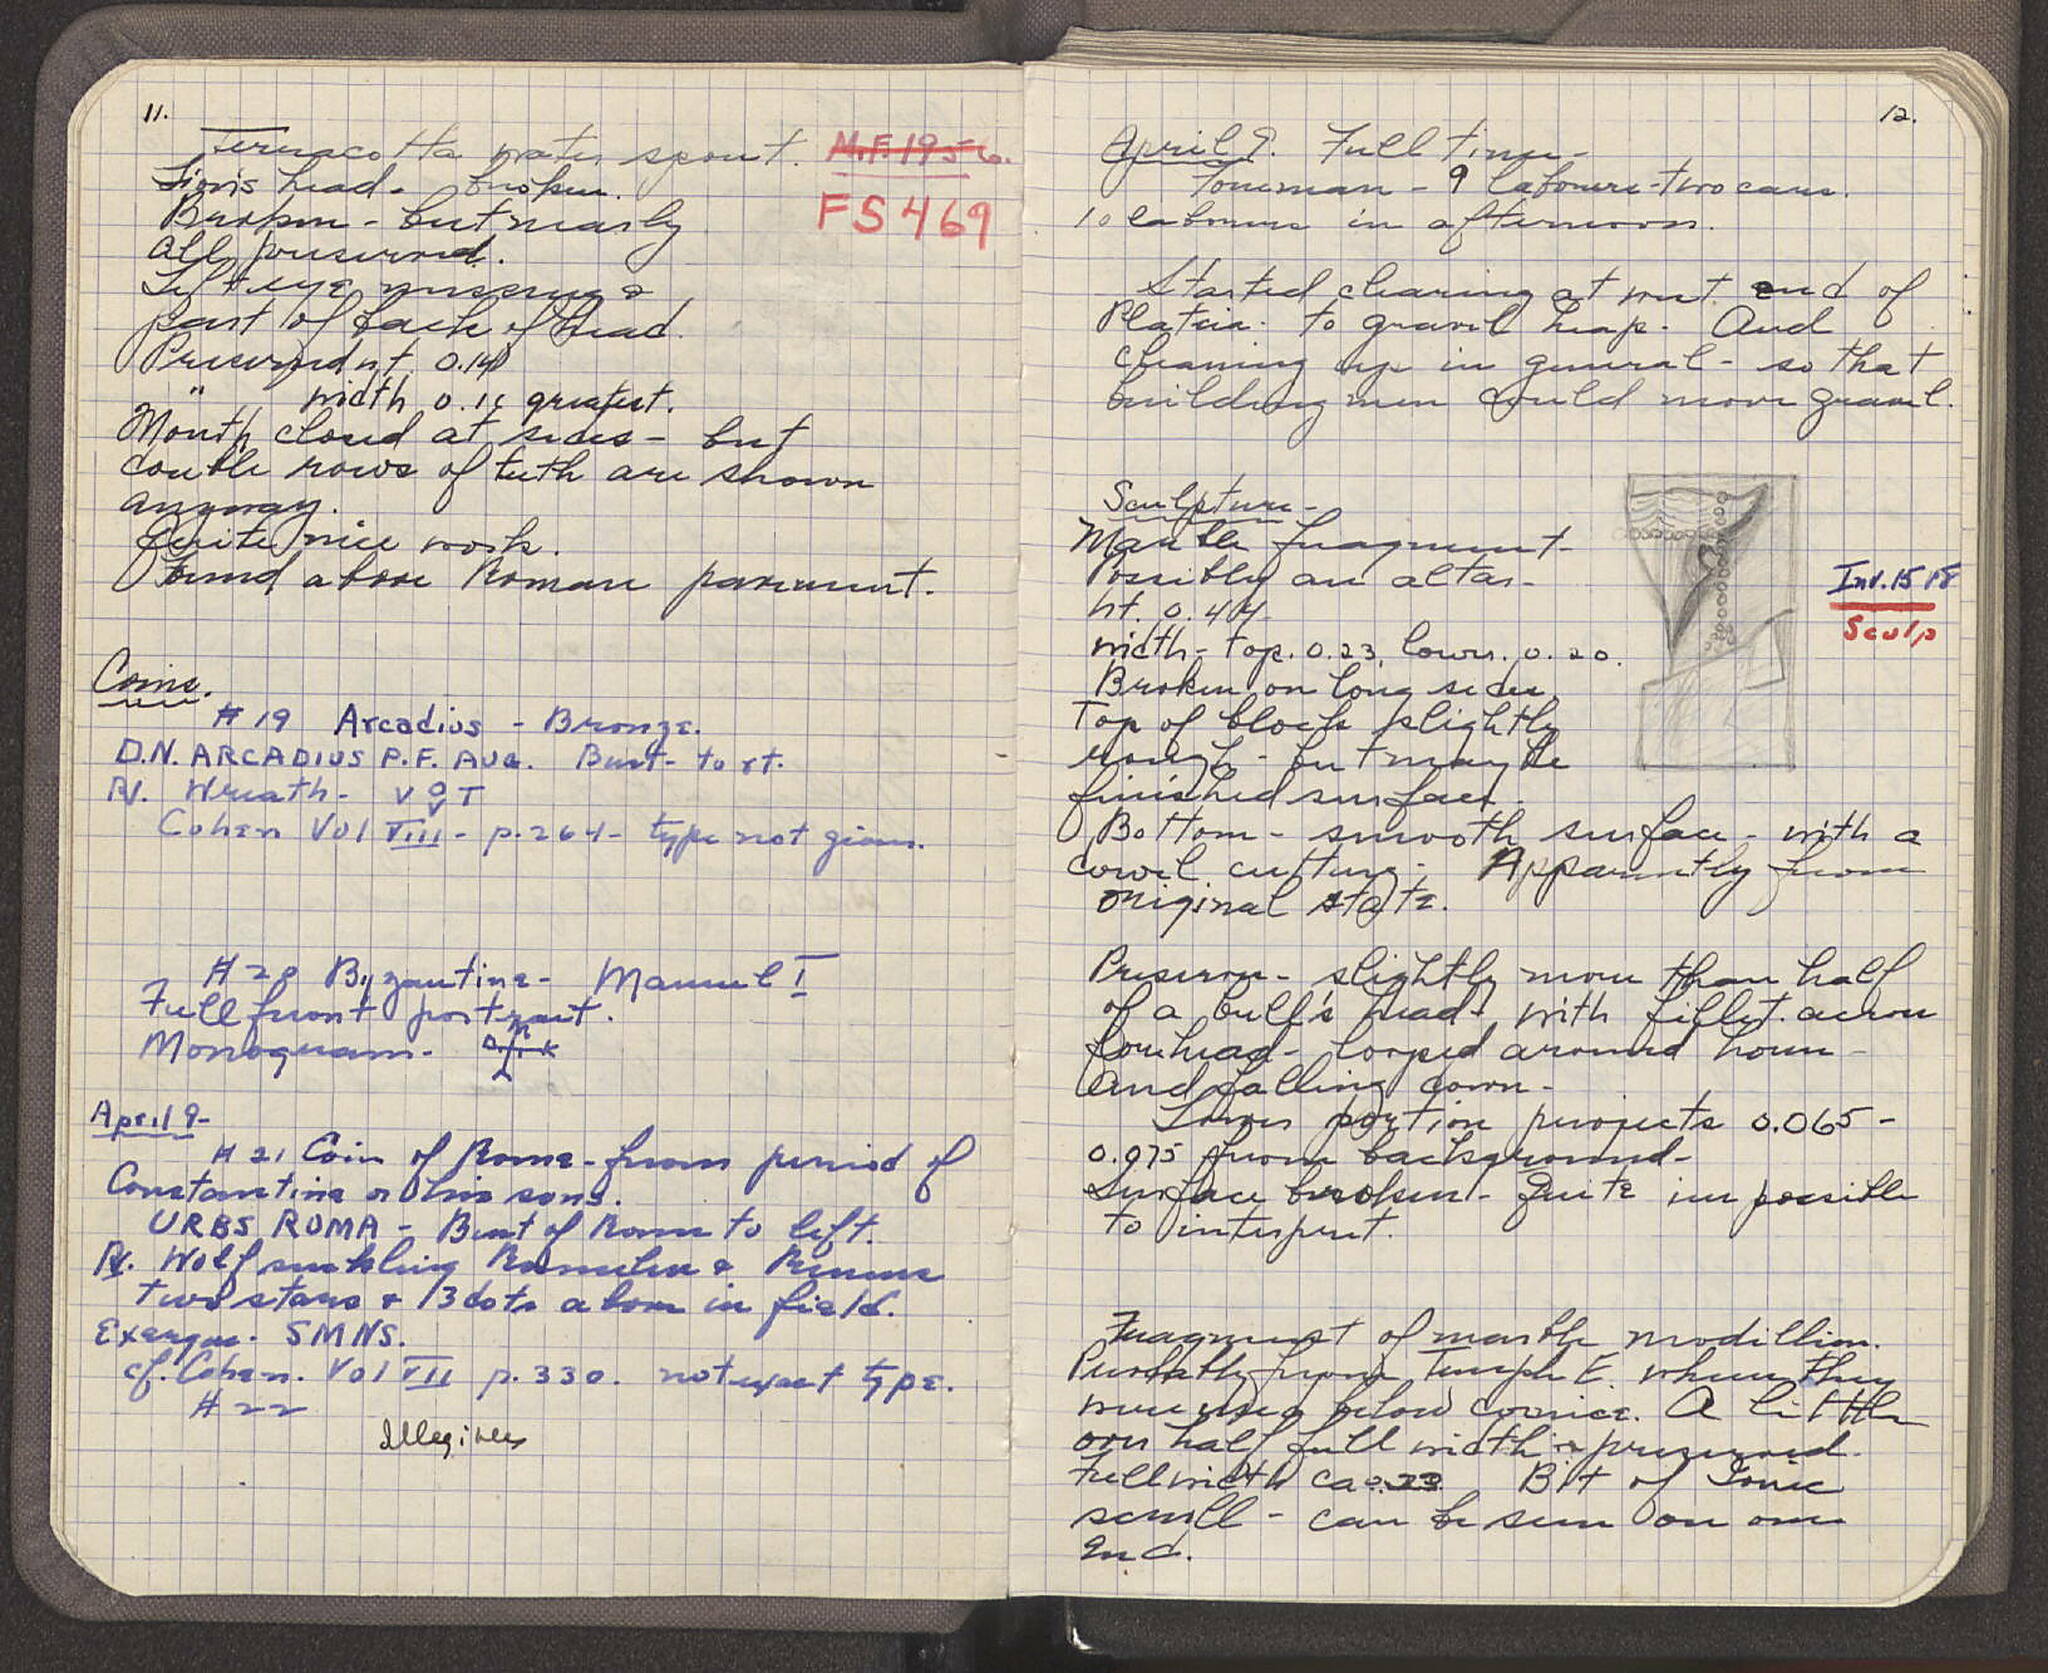 11.
Terracotta water spout. M.F. 1956.
Lion's head - broken.
FS 469
Broken - but nearly
all preserved.
Left eye missing &
part of back of head.
Preserved ht. 0.14
" width 0.16 greatest.
Mouth closed at sides - but
double rows of teeth are shown
anyway.
Quite nice work.
Found above Roman pavement.
Coins.
# 19 Arcadius - Bronze.
D.N. ARCADIUS P.F. AUG. Bust - to rt.
RV. Wreath - V O T
V
Cohen Vol VIII - p. 264 - type not given.
# 20 Byzantine - Manuel I
Full front portrait.
Monogram -
April 9 -
# 21 Coin of Rome - from period of
Constantine or his sons.
URBS ROMA - Bust of Roma to left.
RV. Wolf suckling Romulus & Remus
two stars & 3 dots above in field.
Exergue. SMNS.
cf. Cohen. Vol VII p. 330. not exact type.
# 22
Illegible
12.
April 9. Full time -
Foreman - 9 laborers - two cars.
10 laborers in afternoon.
Started clearing at west end of
Plateia - to gravel heap. And
cleaning up in general - so that
building men could move gravel.
Sculpture -
Marble fragment -
Possibly an altar -
Inv. 1518
Sculp
ht. 0.44
width - top. 0.23, lower. 0.20.
Broken on long sides.
Top of block slightly
rough - but may be
finished surface.
Bottom - smooth surface - with a
dowel cutting. Apparently from
original state.
Preserves - slightly more than half
of a bull's head - with fillet across
forehead - looped around horn -
and falling down -
Lower portion projects 0.065 -
0.075 from background -
Surface broken - Quite impossible
to interpret.
Fragment of marble modillion.
Probably from Temple E. where they
were used below cornice. A little
over half full width is preserved.
Full width ca 0.23 Bit of Ionic
scroll - can be seen on one
end.